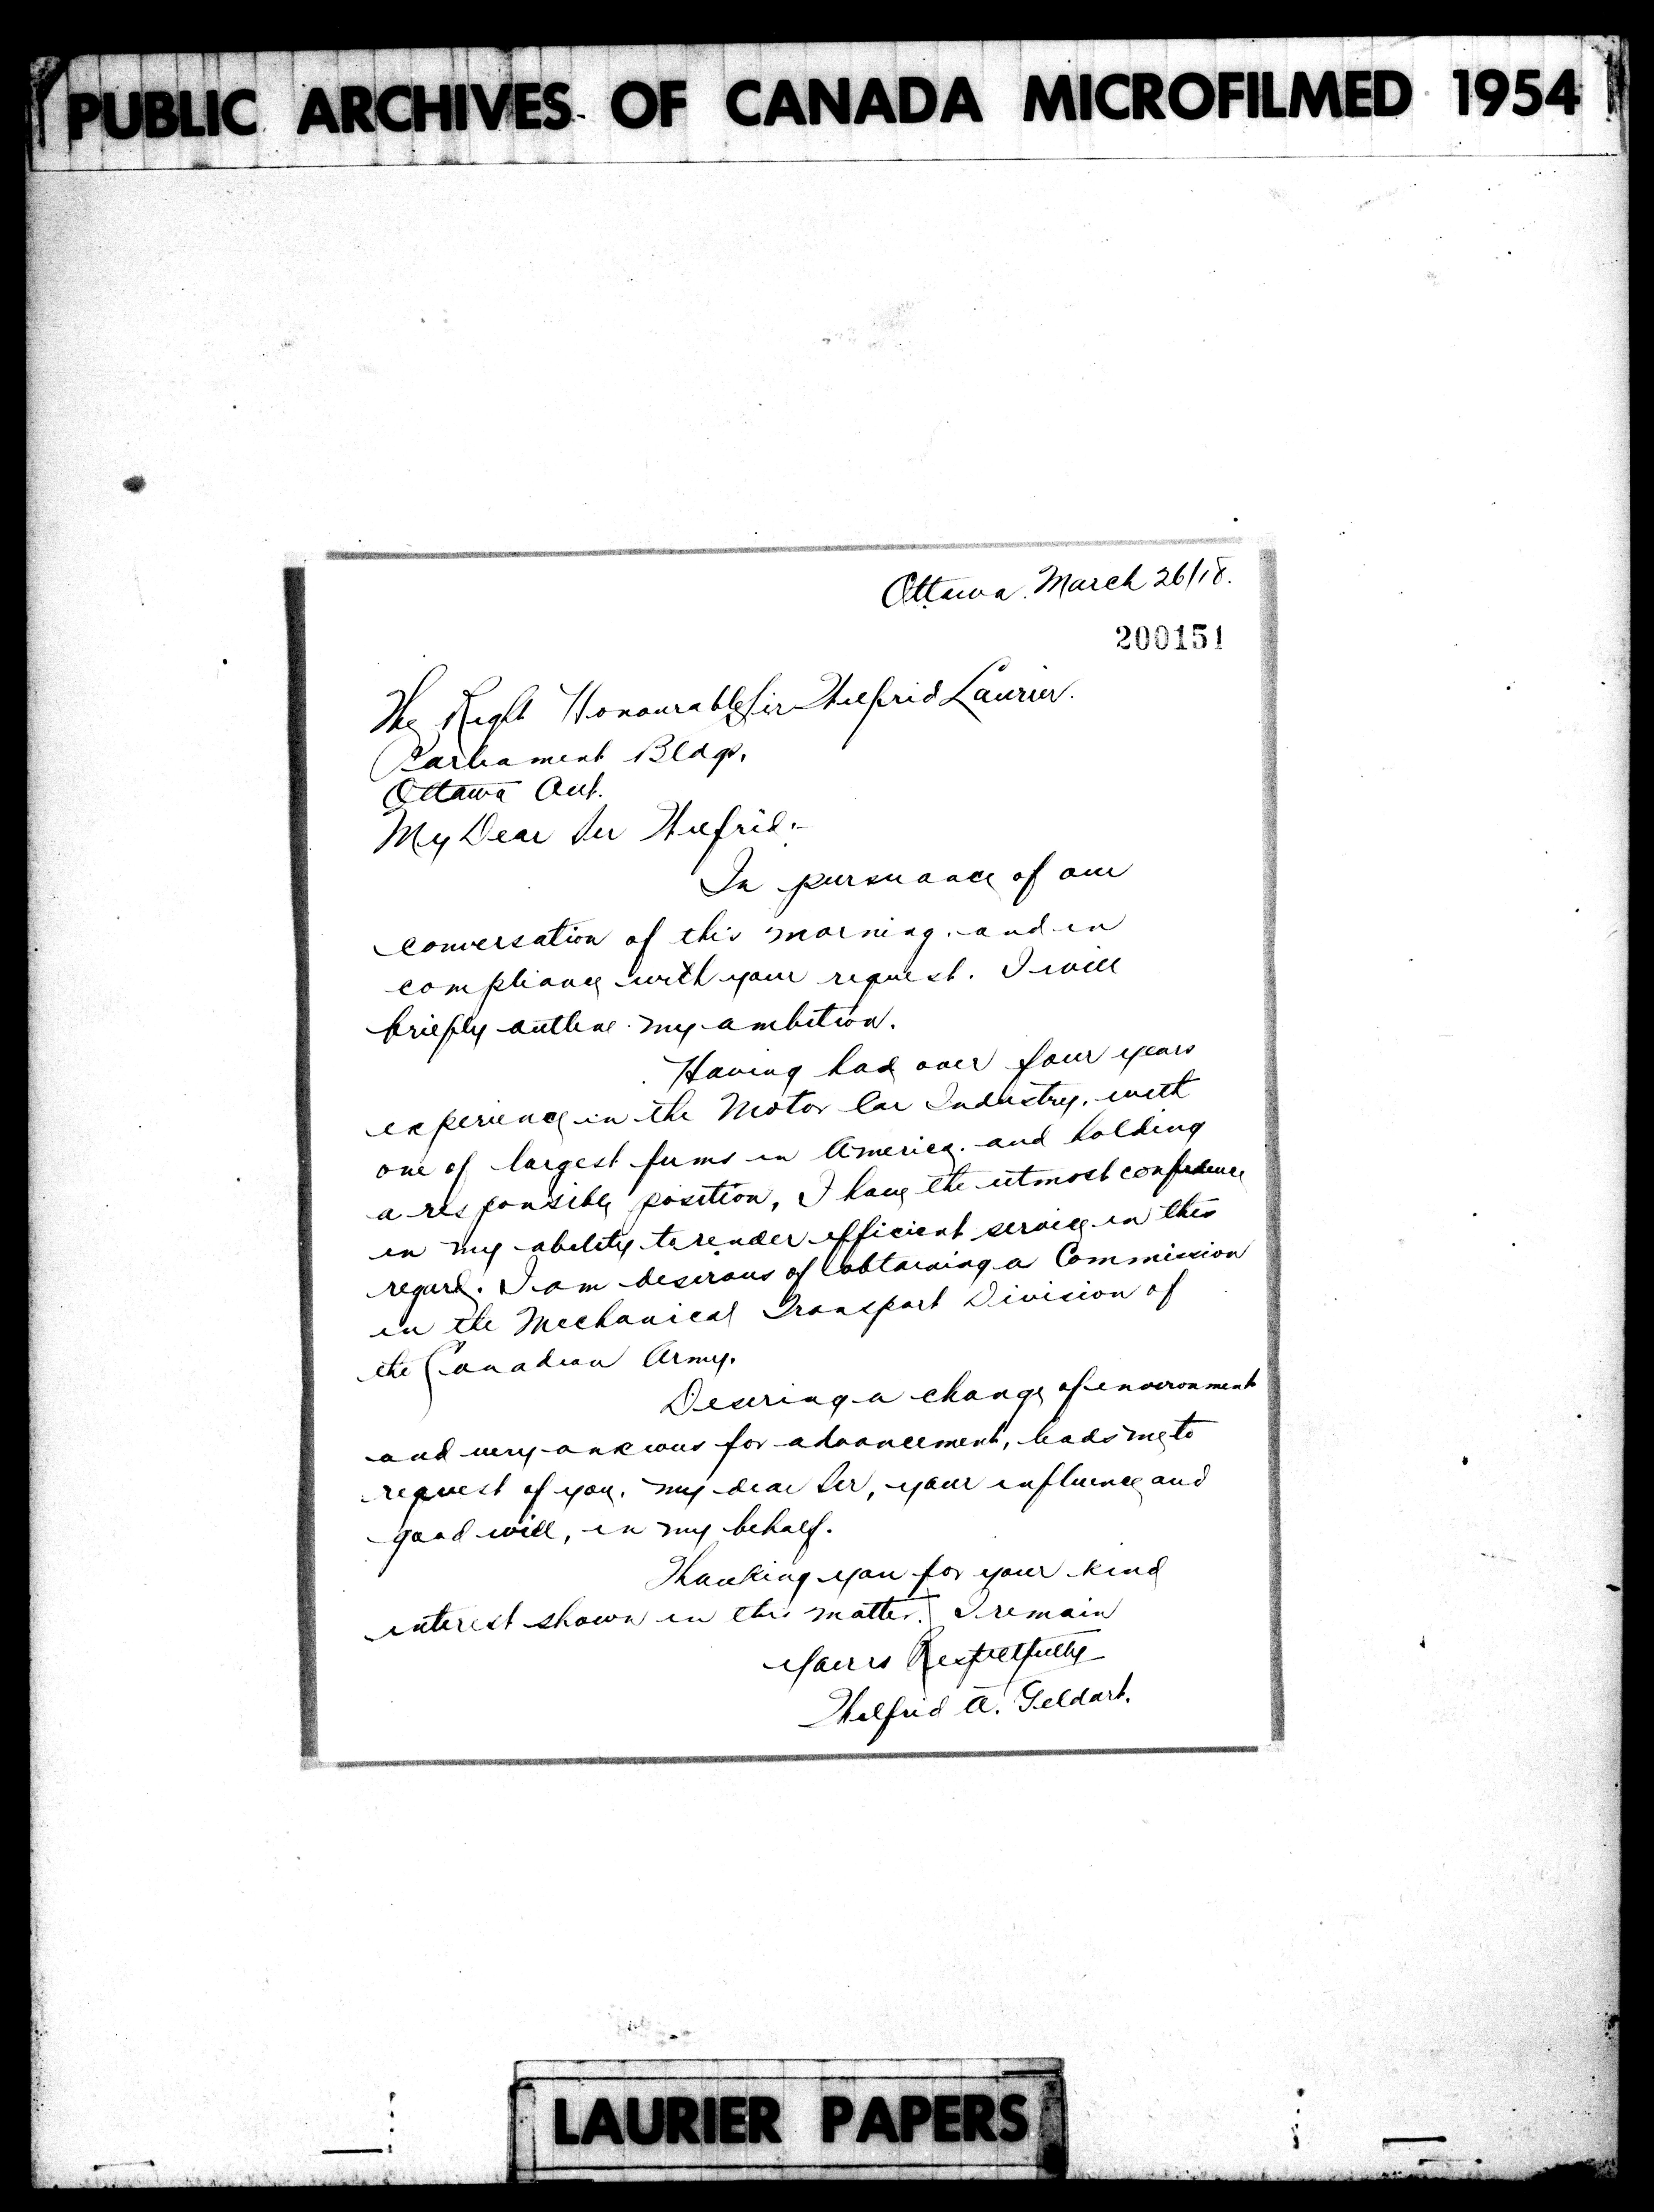 PUBLIC ARCHIVES OF CANADA MICROFILMED 1954
Ottawa. March 26/18.
200151
The Right Honourable Sir Wilfrid Laurier.
Parliament Bldgs.
Ottawa Ont.
My Dear Sir Wilfrid:-
In pursuance of our
conversation of this morning. and in
compliance with your request. I will
briefly outline my ambition.
Having had over four years
experience in the Motor Car Industry, with
one of largest firms in America. and holding
a responsible position, I have the utmost confidence
in my ability to render efficient service in this
regard. I am desirous of obtaining a Commission
in the Mechanical Transport Division of
the Canadian Army.
Desiring a change of environment
and very anxious for advancement, leads me to
request of you, my dear Sir, your influence and
good will, in my behalf.
Thanking you for your kind
interest shown in this matter. I remain
Yours Respectfully
Wilfrid A. Geldart.
LAURIER PAPERS